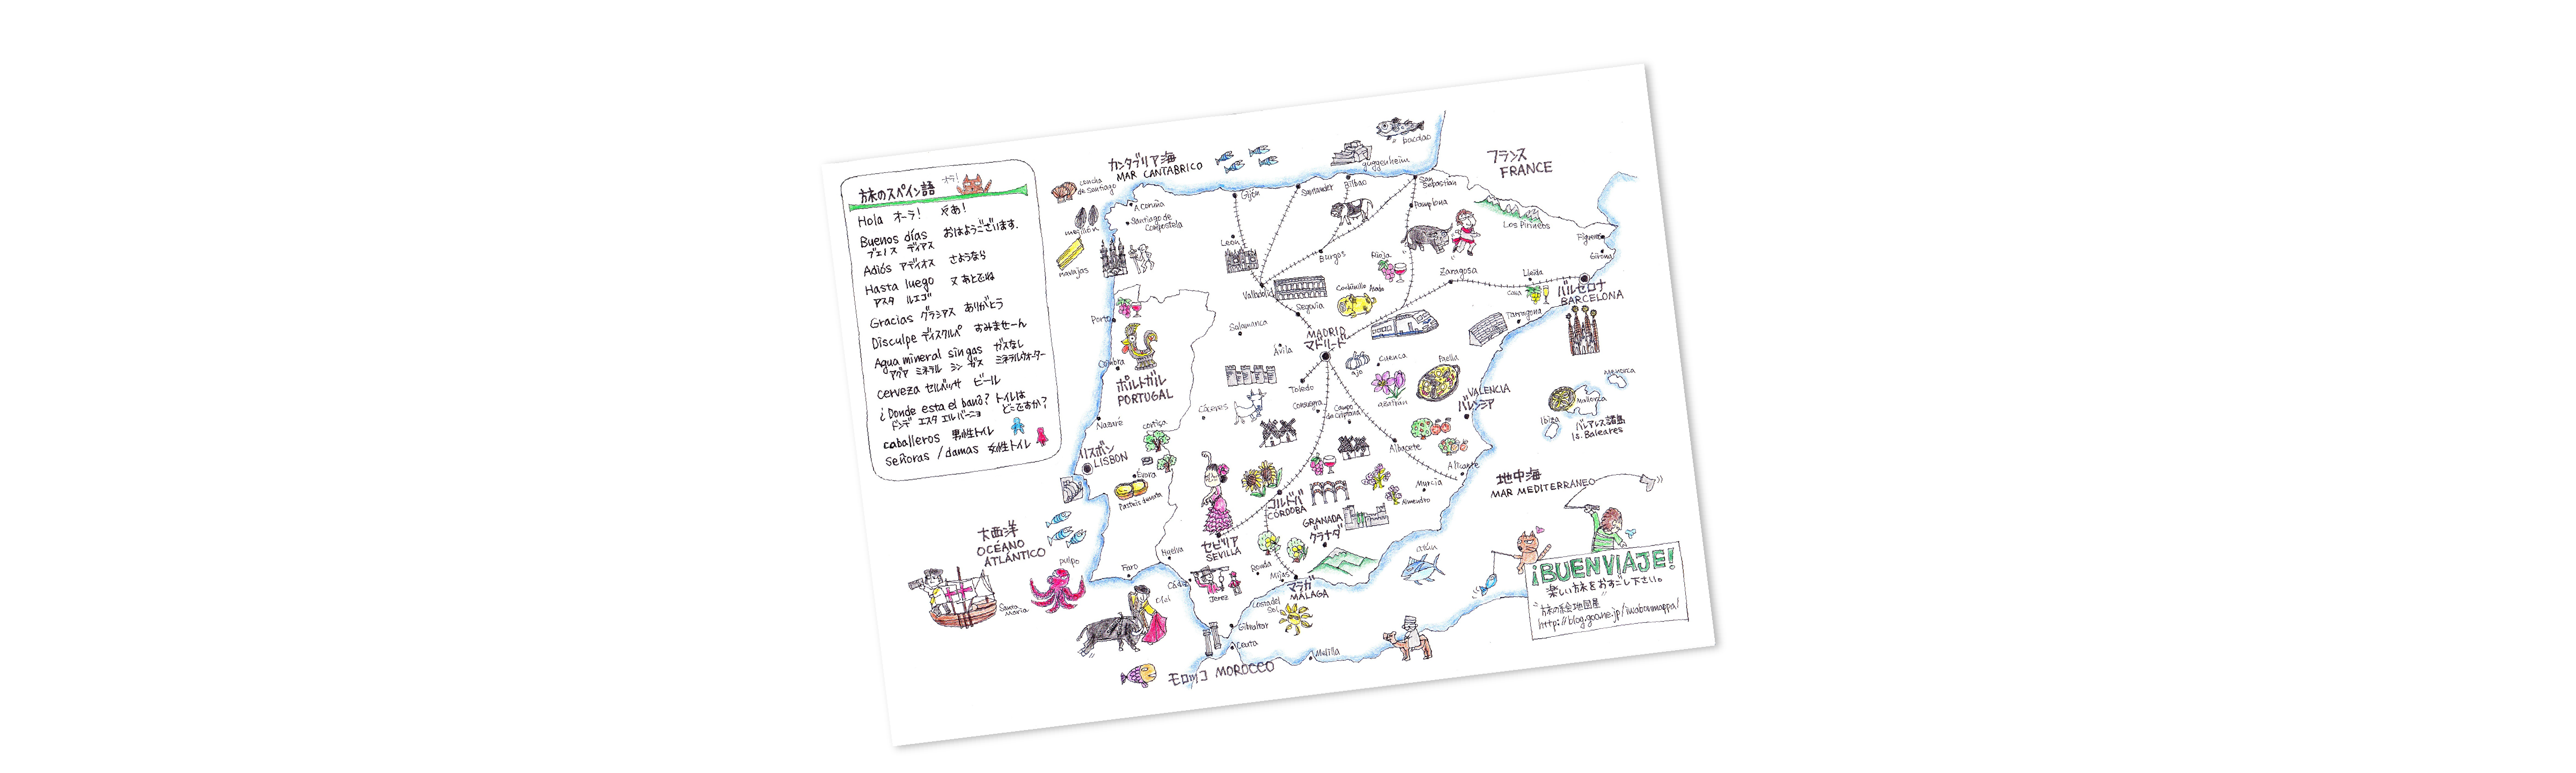 旅のスペイン語
オラ!
Hola オーラ! やあ!
Buenos días おはようございます.
ブエノス ディアス
Adiós アディオス さようなら
Hasta luego 又あとでね
アスタ ルエゴ
Gracias グラシアス ありがとう
Disculpe ディスクルパ すみませーん
Agua mineral sin gas ガスなし
アグア ミネラル シン ガス ミネラルウォーター
cerveza セルバッサ ビール
¿Donde esta el banõ? トイレは
ドンデ エスタ エル バーニョ どこですか?
caballeros 男性トイレ
señoras / damas 女性トイレ
カンタブリア海
MAR CANTABRICO
concha
de Santiago
navajas
A Coruña
Santiago de
Compostela
Gijón
Santander
guggenheim
Bilbao
bacalao
San
Sebastian
Pamplona
フランス
FRANCE
Los Pirineos
Figueres
Girona
León
Burgos
Rioja
Zaragosa
Lleida
cava
バルセロナ
BARCELONA
Tarragona
Valladolid
Segovia
Cochinillo Asado
Salamanca
Ávila
MADRID
マドリード
Porto
Coimbra
ポルトガル
PORTUGAL
Nazaré
cortiça
リスボン
LISBON
Évora
Pasteis de nata
Toledo
ajo
Cuenca
azafrán
Paella
VALENCIA
バレンシア
Menorca
Mallorca
Ibiza
バレアレス諸島
Is. Baleares
Cáceres
Consuegra
Campo
de Criptana
Albacete
Alicante
Murcia
Almendro
コルドバ
CÓRDOBA
GRANADA
グラナダ
セビリア
SEVILLA
Huelva
Faro
Cádiz
Jerez
Ronda
Mijas
マラガ
MÁLAGA
Costa del
Sol
atún
地中海
MAR MEDITERRANEO
大西洋
OCÉANO
ATLÁNTICO
pulpo
Santa
Maria
Gibraltar
Ceuta
Melilla
モロッコ MOROCCO
¡BUEN VIAJE!
楽しい旅をおすごし下さい。
"旅の絵地図屋"
http://blog.goo.ne.jp/iwabonmappa/